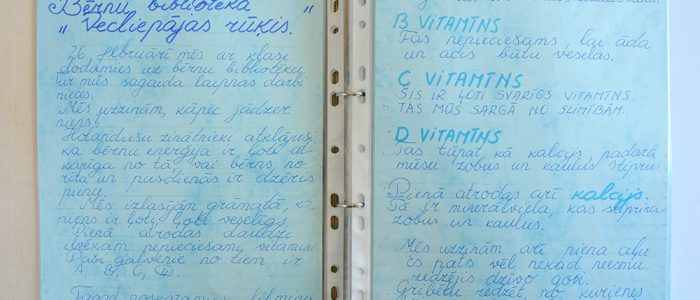 Bērnu bibliotēka
"Vecliepājas rūķis."
26. februārī mēs ar klasi
dodamies uz bērnu bibliotēku,
kur mūs sagaida laipnas darbi
nieces.
Mēs uzzinām, kāpēc jādzer
piens!
Holandiešu zinātnieki atklājuši,
ka bērnu enerģija ir ļoti at
karīga no tā, vai bērns no
rīta un pusdienās ir dzēris
pienu.
Mēs izlasījām grāmatā, ka
piens ir ļoti, ļoti veselīgs.
Pienā atrodas daudzi
cilvēkam nepieciešami vitamīni.
Paši galvenie no tiem ir
A, B, C, D.
Tagad
B VITAMĪNS
Tas nepieciešams, lai āda
un acis būtu veselas.
C VITAMĪNS
ŠIS IR ĻOTI SVARĪGS VITAMĪNS.
TAS MŪS SARGĀ NO SLIMĪBĀM.
D VITAMĪNS
Tas tāpat kā kalcijs padara
mūsu zobus un kaulus stiprus.
Pienā atrodas arī kalcijs.
Tā ir minerālviela, kas stiprina
zobus un kaulus.
Mēs uzzinām arī piena ceļu.
Es pats vēl nekad neesmu
redzējis dzīvo govi.
Gribētu redzēt, no kurienes